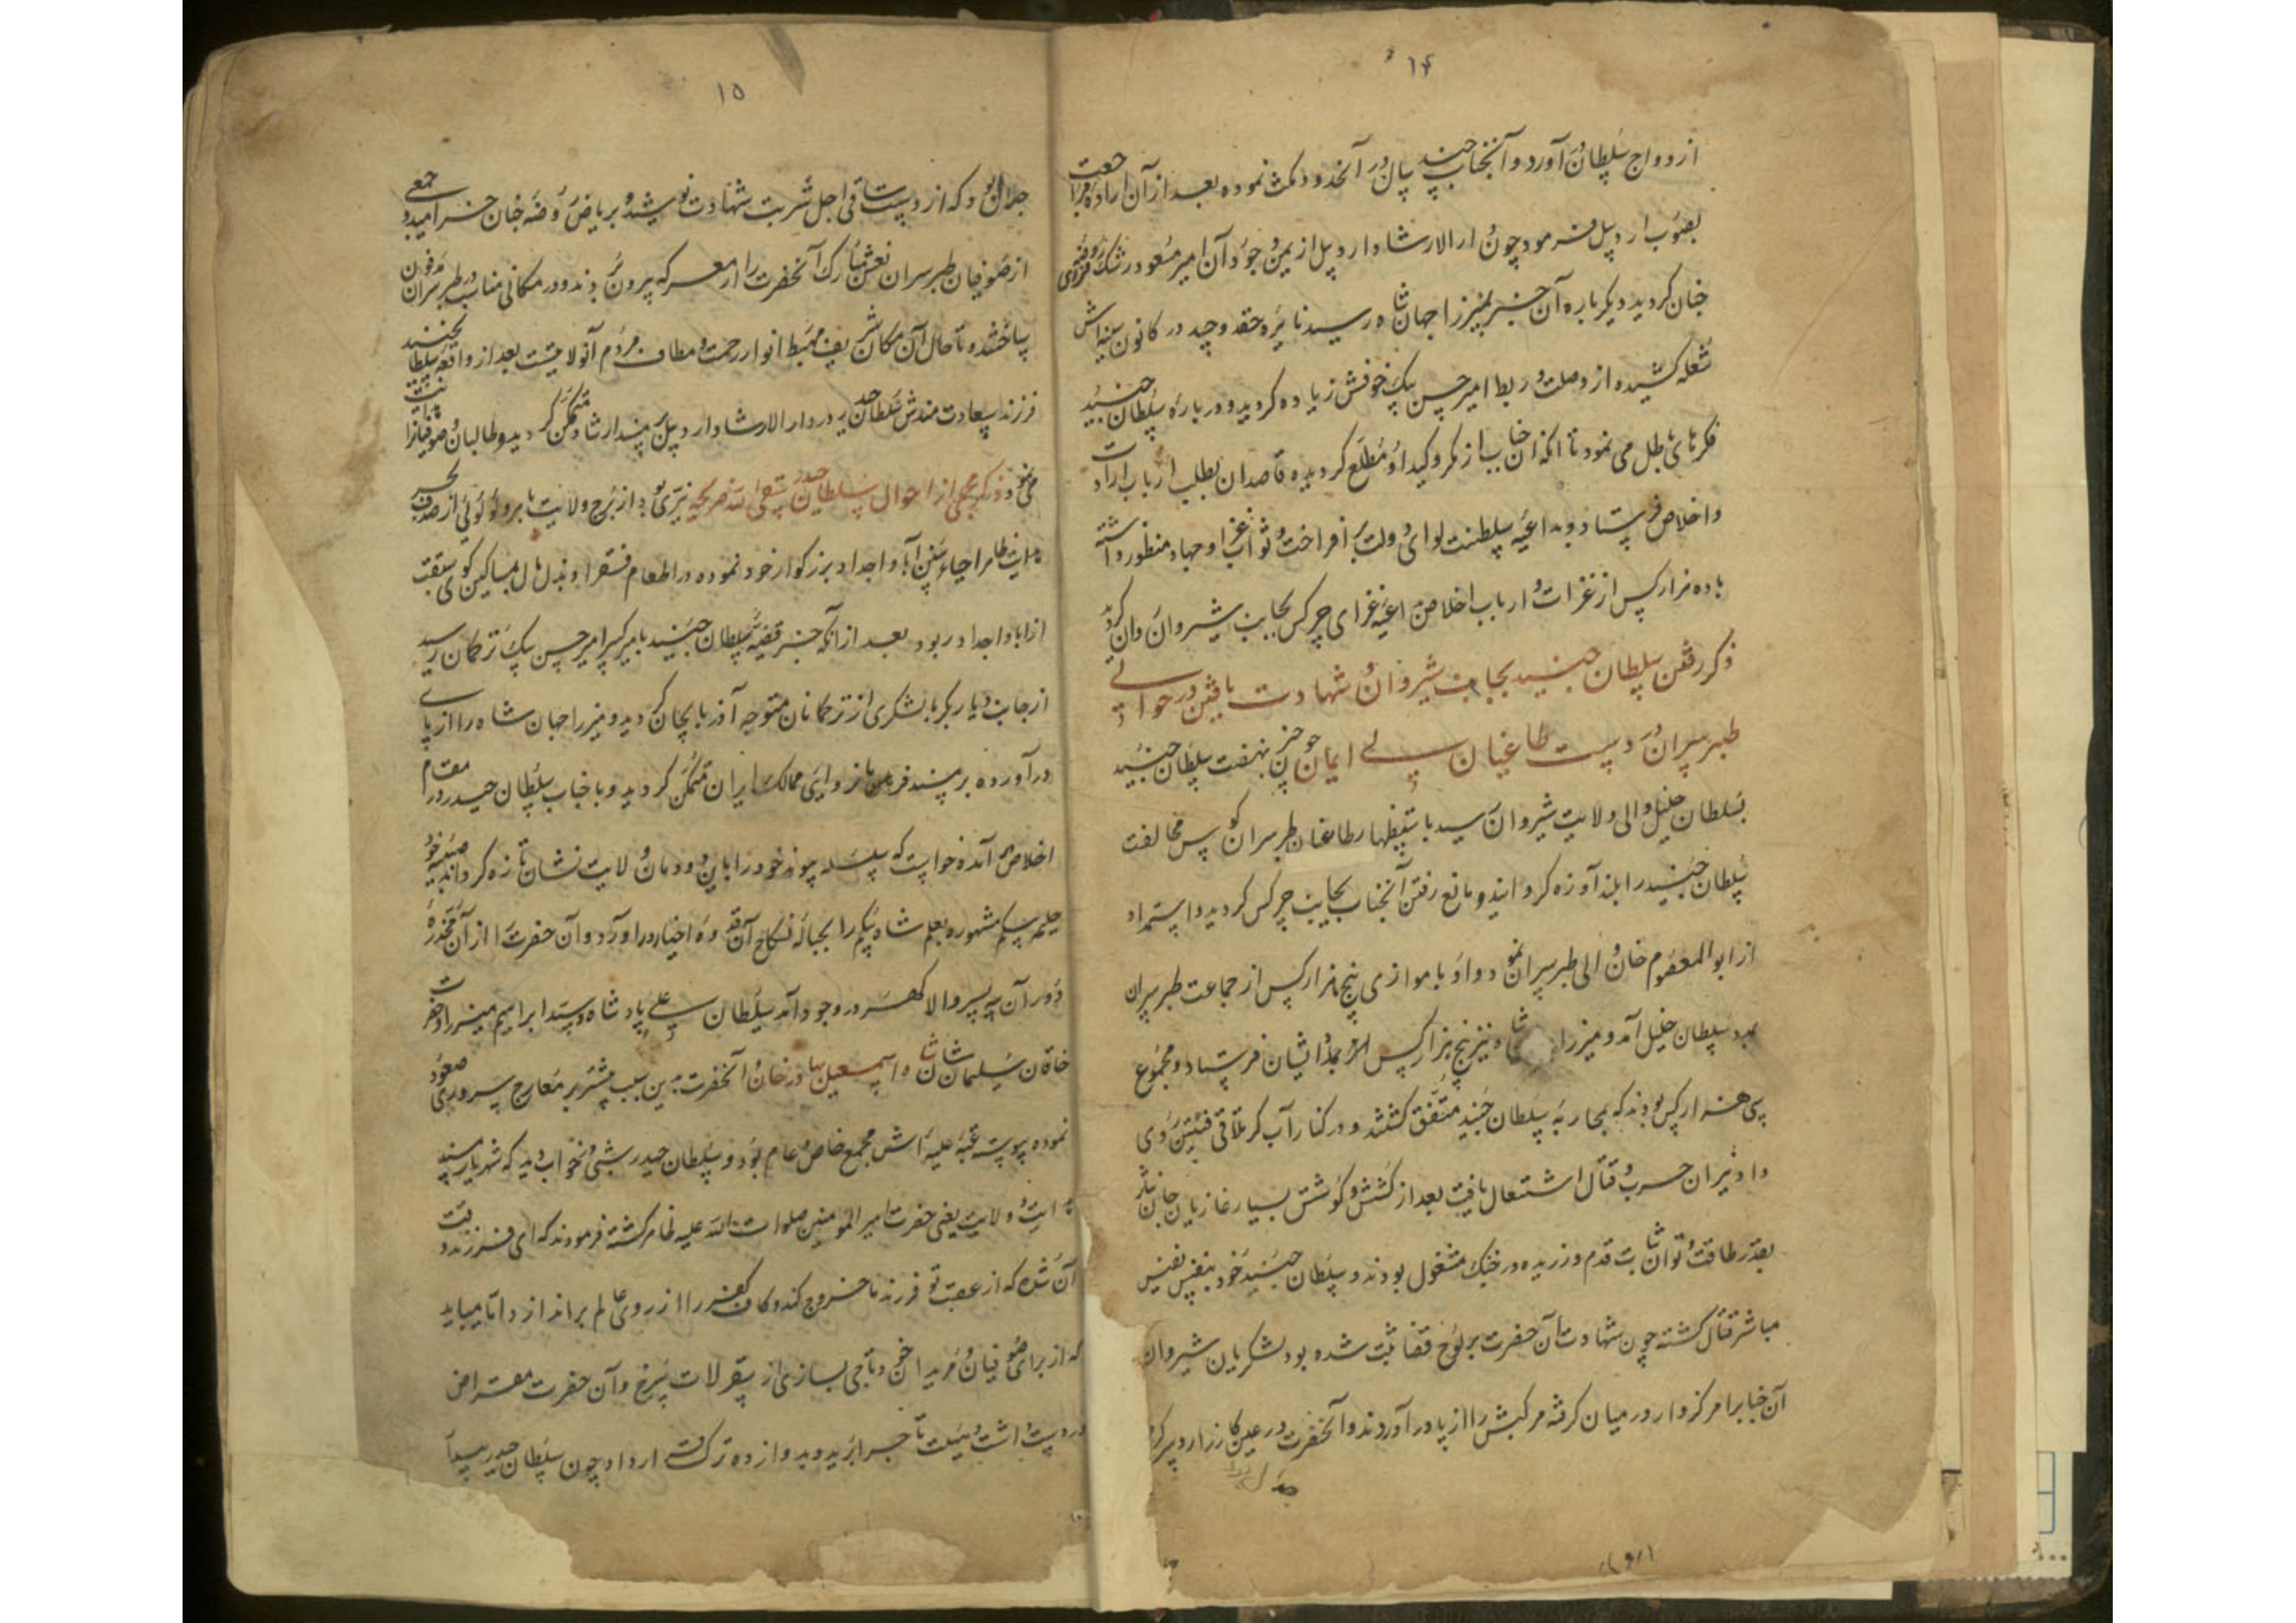 ۱۴
ازدواج سلطان در آورد و آنجناب چند سال در آنحدود مکث نموده بعد از آن اراده مراجعت
بصوب اردبیل فرمود چون دار الارشاد اردبیل از یمن وجود آن امیر مسعود رشک روضه
جنان کردید دیکر باره آن خبر بمیرزا جهان شاه رسید نایره حقد و حسد در کانون سینه اش
شعله کشیده از وصلت و ربط امیر حسن بیک خوفش زیاده کردید و در باره سلطان جنید
فکرهای باطل می نمود تا انکه انجناب از مکر و کید او مطلع کردیده قاصدان بطلب ارباب ارادت
و اخلاص فرستاد و بداعیه سلطنت لوای دولت بر افراخت و ثواب غزا و جهاد منظور داشته
با ده هزار کس از غزات و ارباب اخلاص داعیه غزای چرکس بجانب شیروان روان کردید
ذکر رفتن سلطان جنید بجانب شیروان و شهادت یافتن در حوالی
طبرسران در دست طاغیان بی ایمان چون خبر نهضت سلطان جنید
بسلطان خلیل والی ولایت شیروان رسید باستظهار طاغیان طبرسران کوس مخالفت
سلطان جنید را بلند آوزه کردانید و مانع رفتن آنجناب بجانب چرکس کردید و استمداد
از ابوالمعصوم خان والی طبرسران نمود و او با موازی پنج هزار کس از جماعت طبرسران
بمدد سلطان خلیل آمد و میرزا شاه نیز پنج هزار کس بمدد ایشان فرستاد و مجموع
سی هزار کس بودند که بمحاربه سلطان جنید متفق کشتند و در کنار آب کر تلاقی فئتین روی
داد نیران حرب و قتال اشتعال یافت بعد از کشش و کوشش بسیار غازیان جان نثار
بقدر طاقت و توان ثابت قدم ورزیده در جنک مشغول بودند و سلطان جنید خود بنفس نفیس
مباشر قتال کشته چون شهادت آن حضرت بر لوح قضا ثبت شده بود لشکریان شیروان
آن جناب را مرکزوار در میان کرفته مرکبش را از پا در آوردند و آنحضرت در عین کارزار و سر کرم
۱۵
جدال بود که از دست ساقی اجل شربت شهادت نوشید و بریاض روضه جنان خرامید و جمعی
از صوفیان طبرسران نعش مبارک آنحضرت را از معرکه بیرون بردند و در مکانی مناسب در طبرسران مدفون
ساختند و تا حال آن مکان شریف مهبط انوار رحمت و مطاف مردم آنولایتست بعد از واقعه سلطان جنید
فرزند سعادت مندش سلطان حیدر در دار الارشاد اردبیل بر مسند ارشاد متمکن کردید و طالبان و صوفیانرا
می نمود ذکر مجملی از احوال سلطان حیدر نیری بود از برج ولایت باهر و لؤلؤئی از صدف بحر
هدایت ظاهر احیاء سنن آبا و اجداد بزرکوار خود نموده در اطعام فقرا و بذل مال بمساکین کوی سبقت
از ابا و اجداد ربود بعد از انکه خبر قضیه سلطان جنید بامیر کبیر امیر حسن بیک ترکمان رسید
از جانب دیاربکر با لشکری از ترکمانان متوجه آذربایجان کردید و میرزا جهان شاه را از پای
درآورده بر مسند فرمان فروایی ممالک ایران متمکن کردید و با جناب سلطان حیدر در مقام
اخلاص آمده خواست که سلسله پیوند خود را باین دودمان ولایت نشان تازه کرداند صبیه خود
حلیمه بیکم مشهوره بعلم شاه بیکم را بحباله نکاح آن قدوه اخیار درآورد و آن حضرت را از آن مخدره
دوران سه پسر والا کهر در وجود آمد سلطان علی پادشاه و سید ابراهیم میرزا و حضرت
خاقان سلیمان شان شاه اسمعیل بهادر خان و آنحضرت بدین سبب بیشتر بر معارج سروری صعود
نموده پیوسته عتبه علیه اش مجمع خاص و عام بود و سلطان حیدر شبی در خواب دید که شهریار مسند
هدایت و ولایت یعنی حضرت امیر المومنین صلوات الله علیه ظاهر کشته فرمودند که ای فرزند وقت
آن شد که از عقب تو فرزند ما خروج کند و کاف کفر را از روی عالم براندازد اما میباید
که از برای صوفیان و مریدان خود تاجی بسازی از سقرلات سرخ و آن حضرت مقراض
در دست داشت و هیئت تاج را برید و بدوازده ترک قرار داد چون سلطان حیدر بیدار